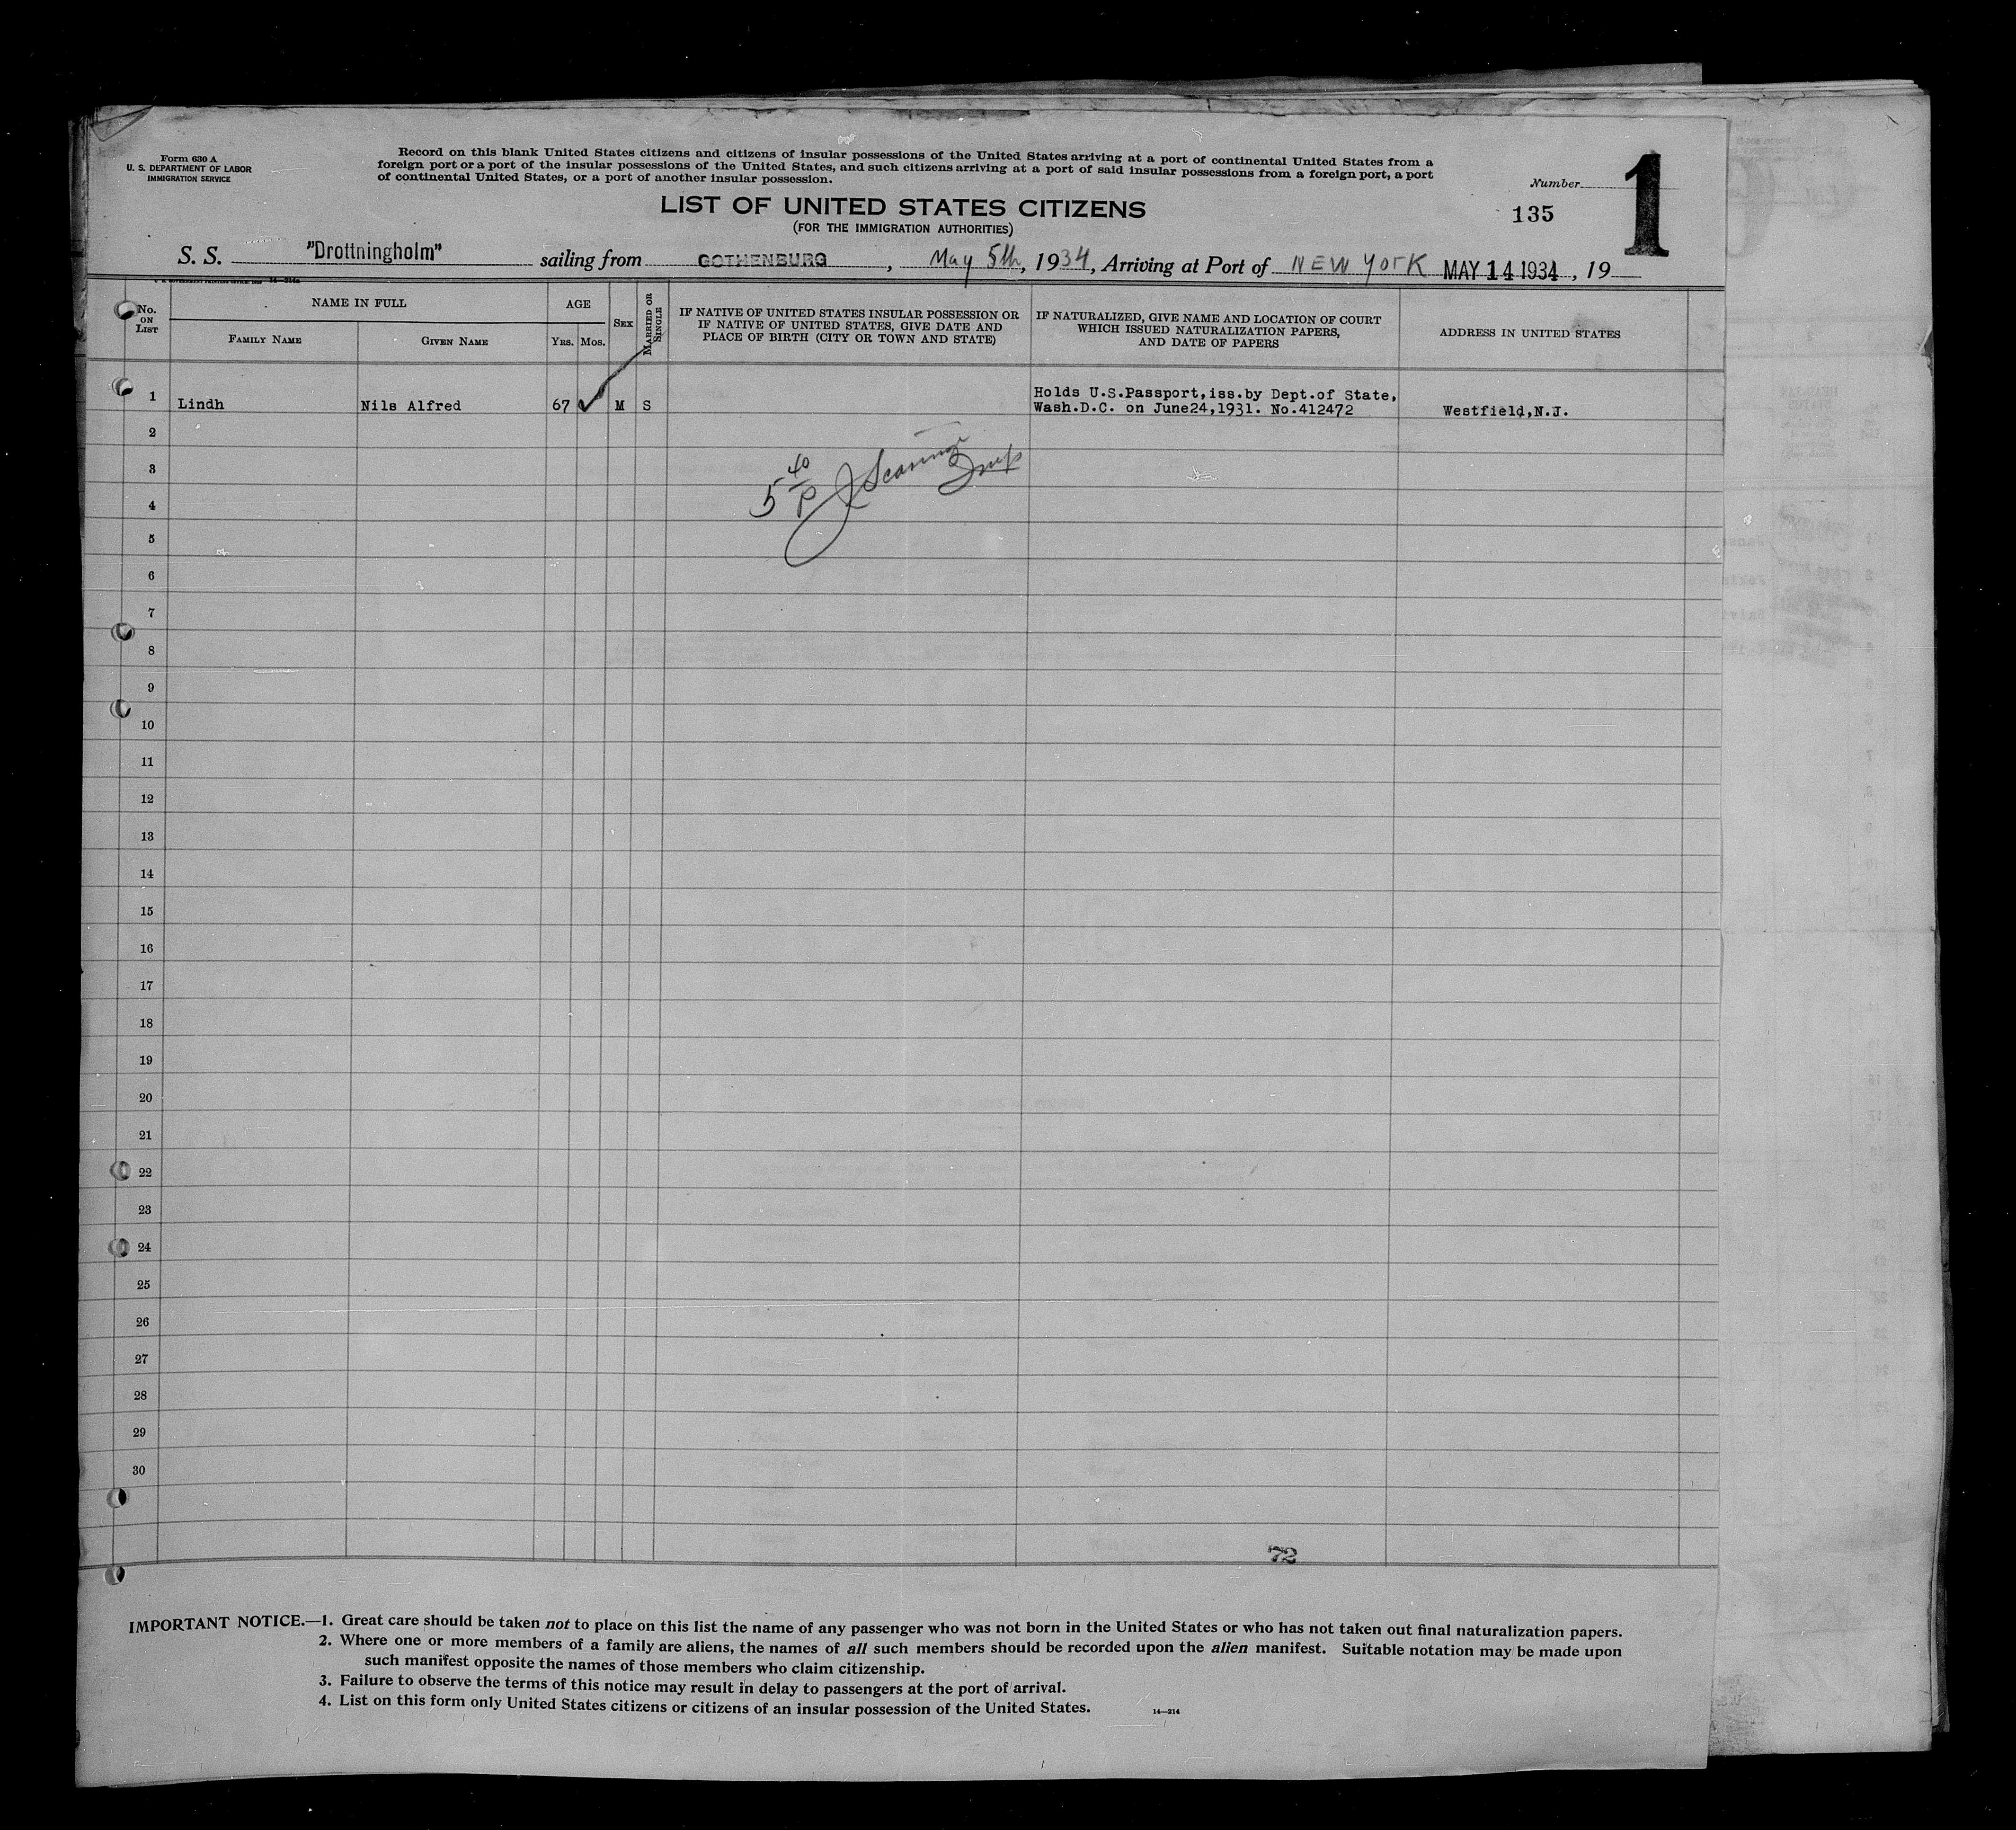 Form 630 A
U. S. DEPARTMENT OF LABOR
IMMIGRATION SERVICE
Record on this blank United States citizens and citizens of insular possessions of the United States arriving at a port of continental United States from a
foreign port or a port of the insular possessions of the United States, and such citizens arriving at a port of said insular possessions from a foreign port, a port
of continental United States, or a port of another insular possession.
Number
1
135
LIST OF UNITED STATES CITIZENS
(FOR THE IMMIGRATION AUTHORITIES)
S. S. "Drottningholm" sailing from GOTHENBURG, May 5th, 1934, Arriving at Port of NEW YORK MAY 14 1934, 19
No. ON LIST
NAME IN FULL
FAMILY NAME
GIVEN NAME
AGE
YRS.
MOS.
SEX
MARRIED OR SINGLE
IF NATIVE OF UNITED STATES INSULAR POSSESSION OR
IF NATIVE OF UNITED STATES, GIVE DATE AND
PLACE OF BIRTH (CITY OR TOWN AND STATE)
IF NATURALIZED, GIVE NAME AND LOCATION OF COURT
WHICH ISSUED NATURALIZATION PAPERS,
AND DATE OF PAPERS
ADDRESS IN UNITED STATES
1 Lindh Nils Alfred 67 M S
Holds U.S.Passport,iss.by Dept.of State,
Wash.D.C. on June24,1931. No.412472
Westfield,N.J.
2
3
5 40 P
4
5
6
7
8
9
10
11
12
13
14
15
16
17
18
19
20
21
22
23
24
25
26
27
28
29
30
72
IMPORTANT NOTICE.—1. Great care should be taken not to place on this list the name of any passenger who was not born in the United States or who has not taken out final naturalization papers.
2. Where one or more members of a family are aliens, the names of all such members should be recorded upon the alien manifest. Suitable notation may be made upon
such manifest opposite the names of those members who claim citizenship.
3. Failure to observe the terms of this notice may result in delay to passengers at the port of arrival.
4. List on this form only United States citizens or citizens of an insular possession of the United States.
14—214